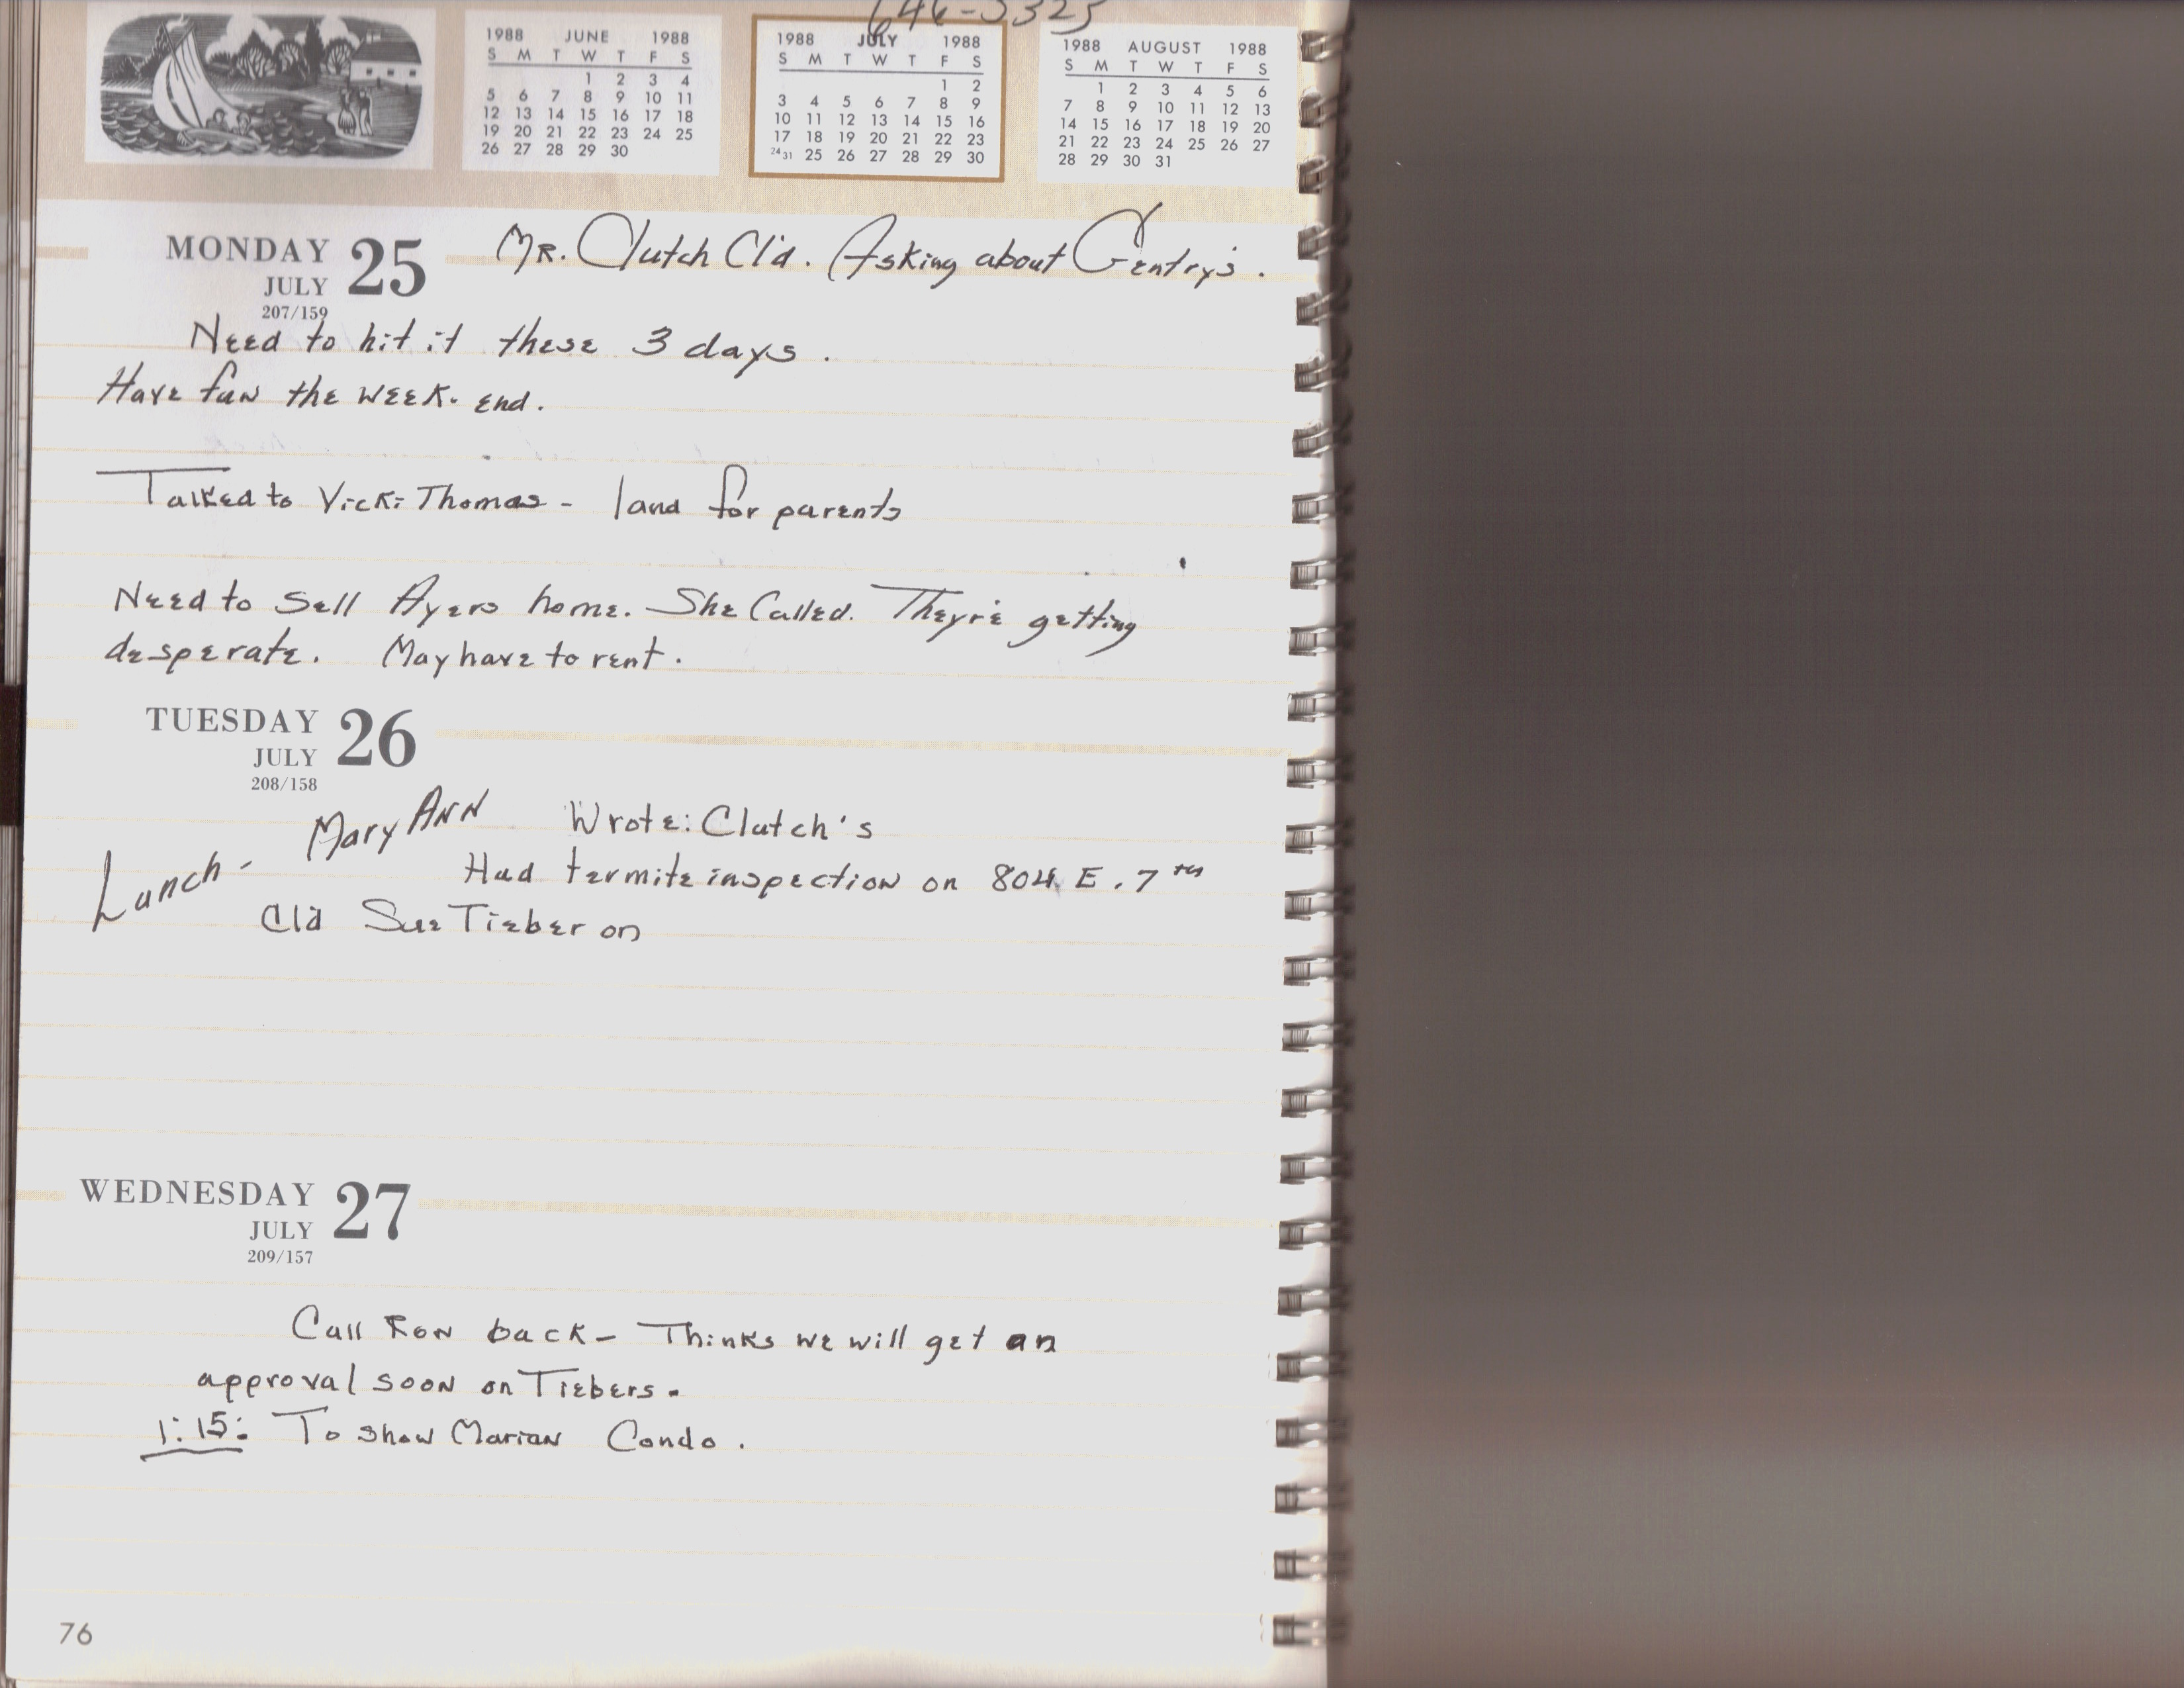 646-5325
1988 JUNE 1988
S M T W T F S
1 2 3 4
5 6 7 8 9 10 11
12 13 14 15 16 17 18
19 20 21 22 23 24 25
26 27 28 29 30
1988 JULY 1988
S M T W T F S
1 2
3 4 5 6 7 8 9
10 11 12 13 14 15 16
17 18 19 20 21 22 23
24 31 25 26 27 28 29 30
1988 AUGUST 1988
S M T W T F S
1 2 3 4 5 6
7 8 9 10 11 12 13
14 15 16 17 18 19 20
21 22 23 24 25 26 27
28 29 30 31
MONDAY 25
JULY
207/159
MR. Clutch Cl'd. Asking about Gentry's.
Need to hit it these 3 days.
Have fun the week-end.
Talked to Vicki Thomas - land for parents
Need to sell Ayers home. She Called. They're getting
desperate. May have to rent.
TUESDAY 26
JULY
208/158
Lunch - Mary Ann
Wrote: Clutch's
Had termite inspection on 804 E. 7th
Cl'd Sue Tieber on
WEDNESDAY 27
JULY
209/157
Call Ron back - Thinks we will get an
approval soon on Tiebers.
1:15: To show Marian Condo.
76